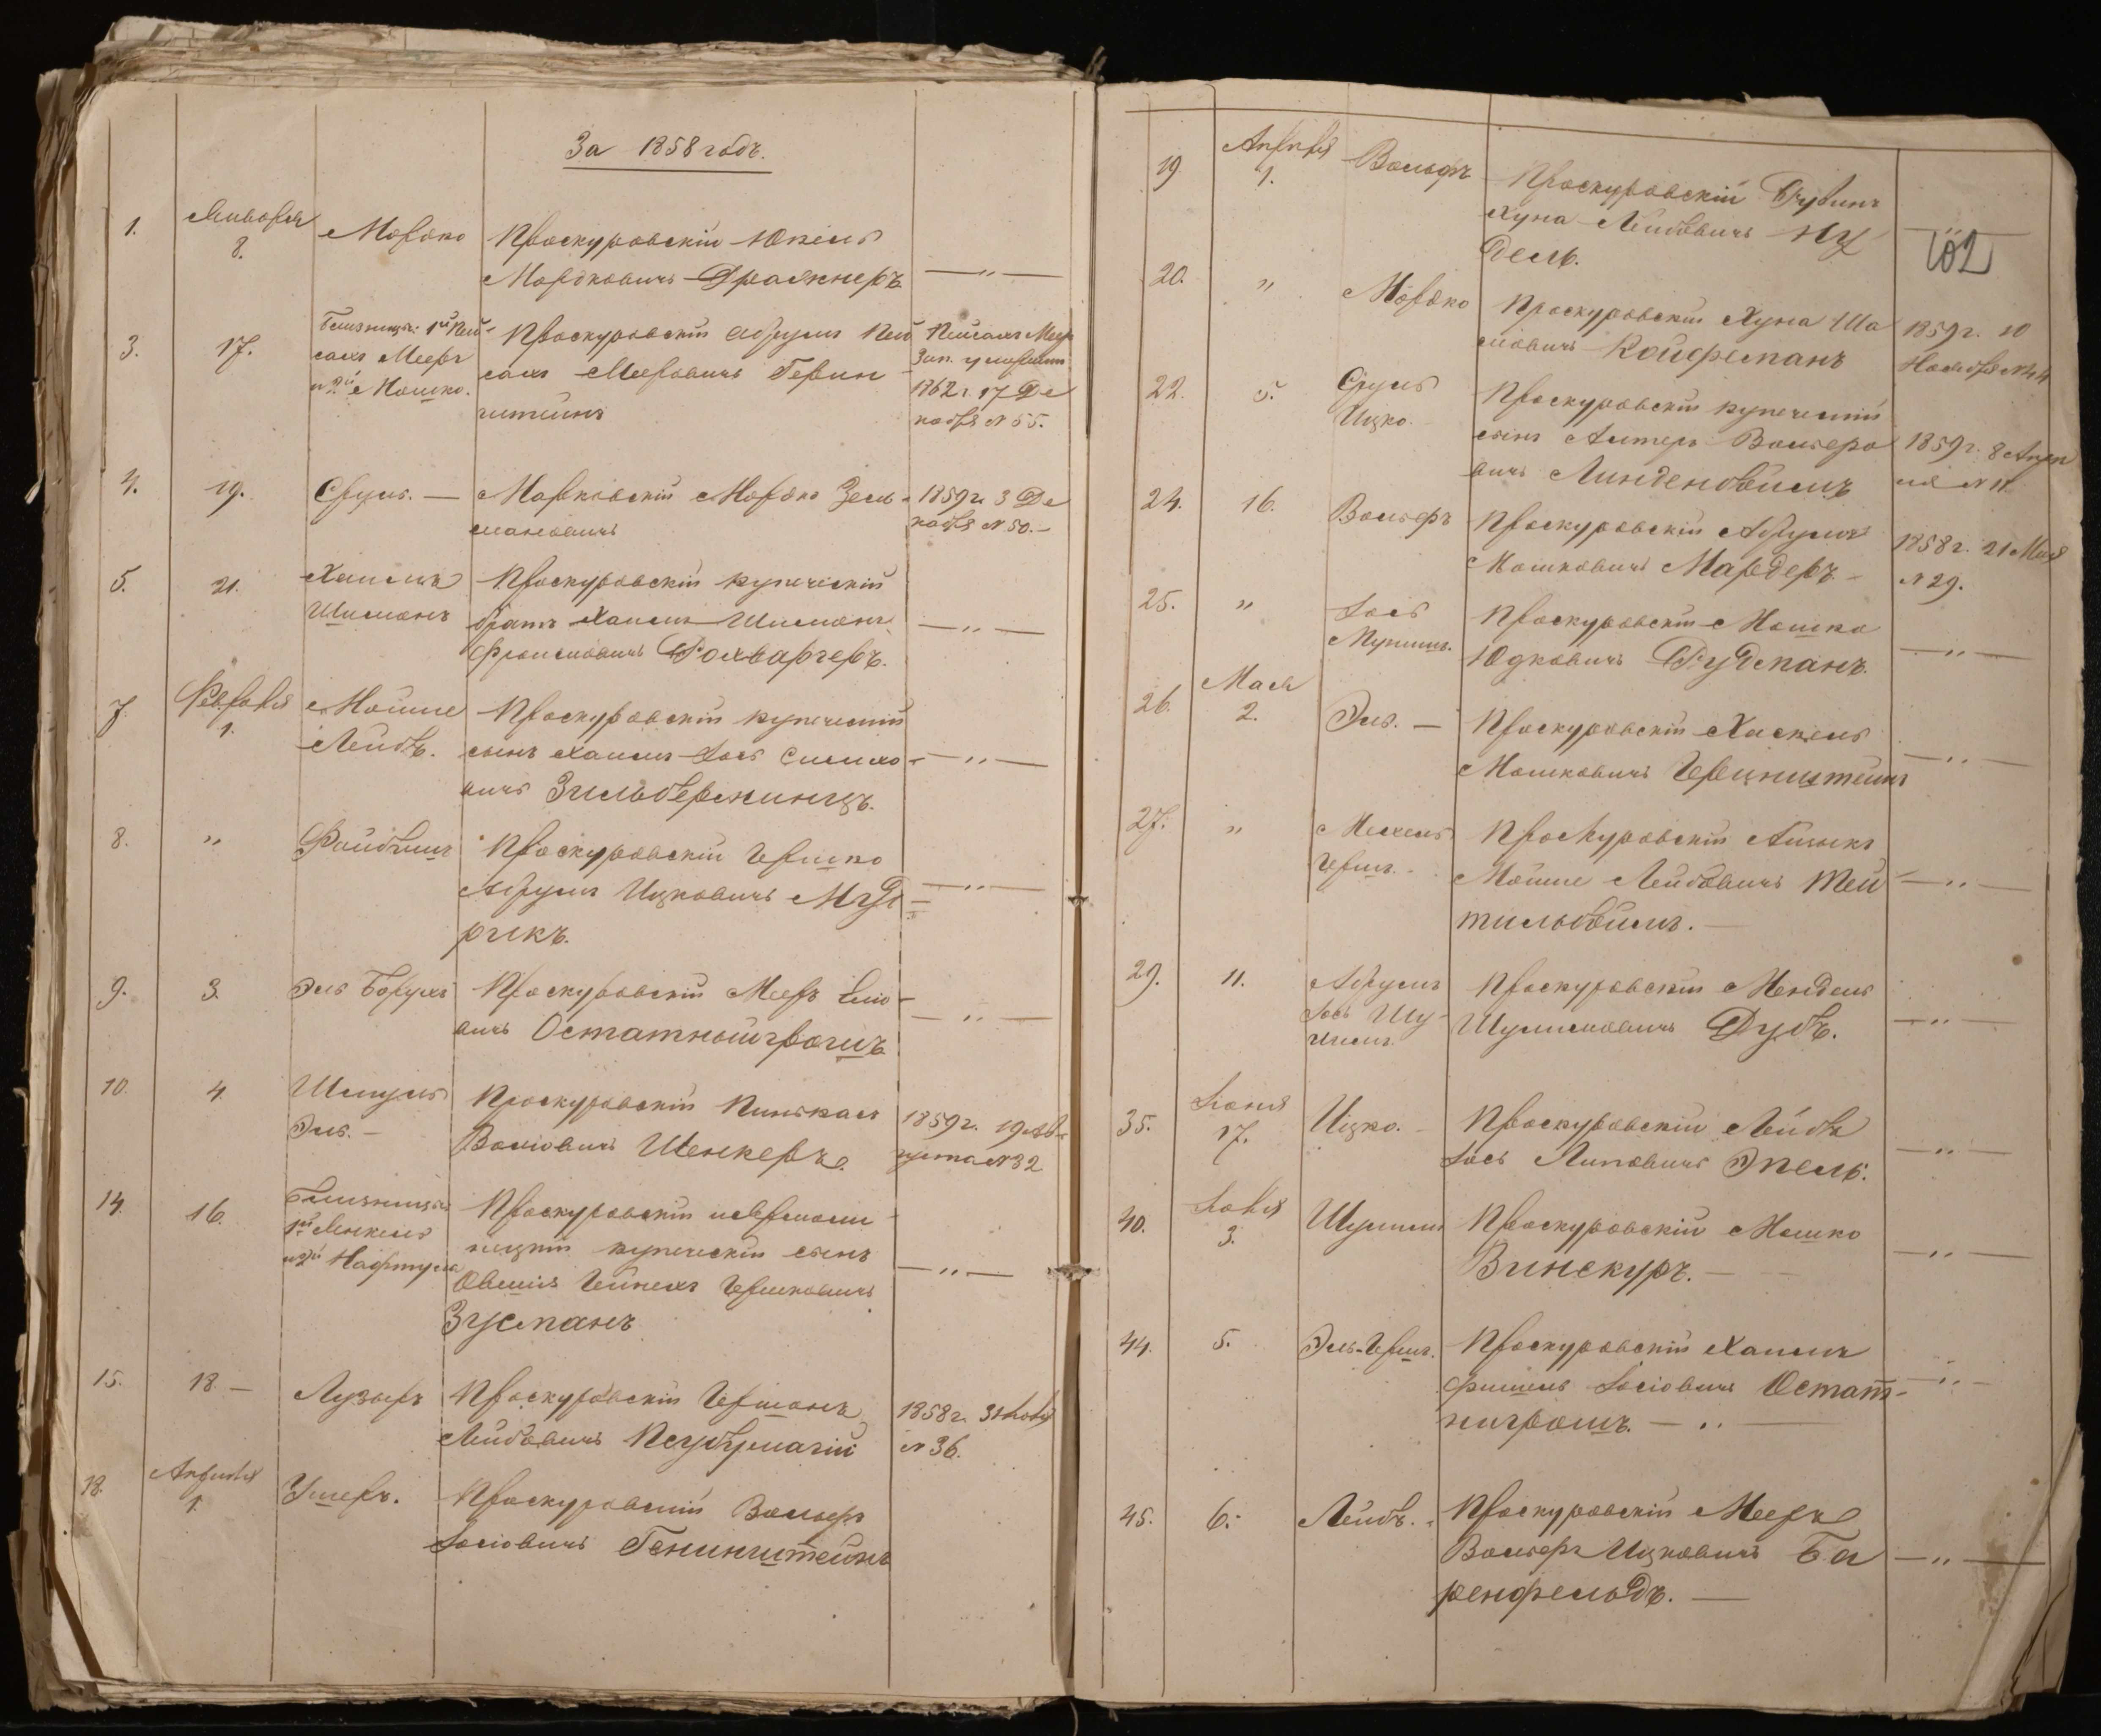 За 1858 годъ.
1.
Января
8.
Мордко
Проскуровскій Юкель
Мордковичъ Дражнеръ
— " —
3.
17.
Близнецы: 1й Пей-
сахъ Мееръ
и 2й Мошко.
Проскуровскій Абрумъ Пей
сахъ Мееровичъ Берин
штейнъ
Пейсахъ Меер
Зап. умершим
1862 г. 17 Де
кабря № 55.
4.
19.
Сруль. —
Марковскій Мордко Зель-
мановичъ
1859 г. 3 Де
кабря № 50. –
5.
21.
Хаимъ
Шимонъ
Проскуровскій купеческій
братъ Хаимъ Шимонъ
Фроимовичъ
— " —
7.
Февраля
1.
Мойше
Лейбъ.
Проскуровскій купеческій
сынъ Хаимъ Іось Симхо-
вичъ
— " —
8.
"
Файбишъ
Проскуровскій Гершко
Абрумъ Ицковичъ Муд-
рикъ.
— " —
9.
3.
Эль Борухъ
Проскуровскій Мееръ Еліо-
вичъ Остатныйгрошъ
— " —
10.
4.
Шмуль
Эль. –
Проскуровскій Пинькас
Волковичъ Шенкеръ.
1859 г. 19 Ав-
густа № 32
14.
16.
Близнецы
1й Янкель
и 2й Нафтула
Проскуровскій и Ярмоли
нецкій купеческій сынъ
Овшія Гейнехъ Гершковичъ
Зусманъ
— " —
15.
18 –
Лузоръ
Проскуровскій Гершонъ
Лейбовичъ
1858 г. 31 Іюля
№ 36.
18.
Апреля
1.
Ушеръ.
Проскуровскій Вольфъ
Іосіовичъ Бенинштейнъ
102
19
Апреля
1.
Вольфъ
Проскуровскій Рувинъ
Хуна Лейбовичъ Ну
дель.
20.
"
Мордко
Проскуровскій Хуна Ша
Койфманъ
1859 г. 10
Ноября № 44
22.
5.
Сруль
Ицко.
Проскуровскій купеческій
сынъ Алтеръ Вольфо
вичъ Линденбоймъ
1859 г. 8 Апре
ля № 11.
24.
16.
Вольфъ
Проскуровскій Абрумъ
Мошковичъ Мардеръ –
1858 г. 21 Мая
№ 29.
25.
"
Іось
Проскуровскій Мошко
Юдковичъ Гудманъ.
— " —
26.
Мая
2.
Эль. —
Проскуровскій Хаскель
Мошковичъ
— " —
27.
"
Мехель
Герш.
Проскуровскій Айзыкъ
Мойше Лейбовичъ Тей
тильбоймъ. —
— " —
29.
11.
Абрумъ
Іось Шу-
лимъ.
Проскуровскій Мендель
Шулимовичъ Дубъ.
— " —
35.
Іюня
17.
Ицко. –
Проскуровскій Лейбъ
Іось Липовичъ Эпель.
— " —
40.
Іюля
3.
Шулимъ
Проскуровскій Мошко
Винскуръ. —
— " —
44.
5.
Эль-Герш.
Проскуровскій Хаимъ
Фишель Іосіовичъ Остат-
нигрошъ. — " —
— " —
45.
6.
Лейбъ.
Проскуровскій Мееръ
Вольфъ Ицковичъ Ба
ренфельдъ. —
— " —